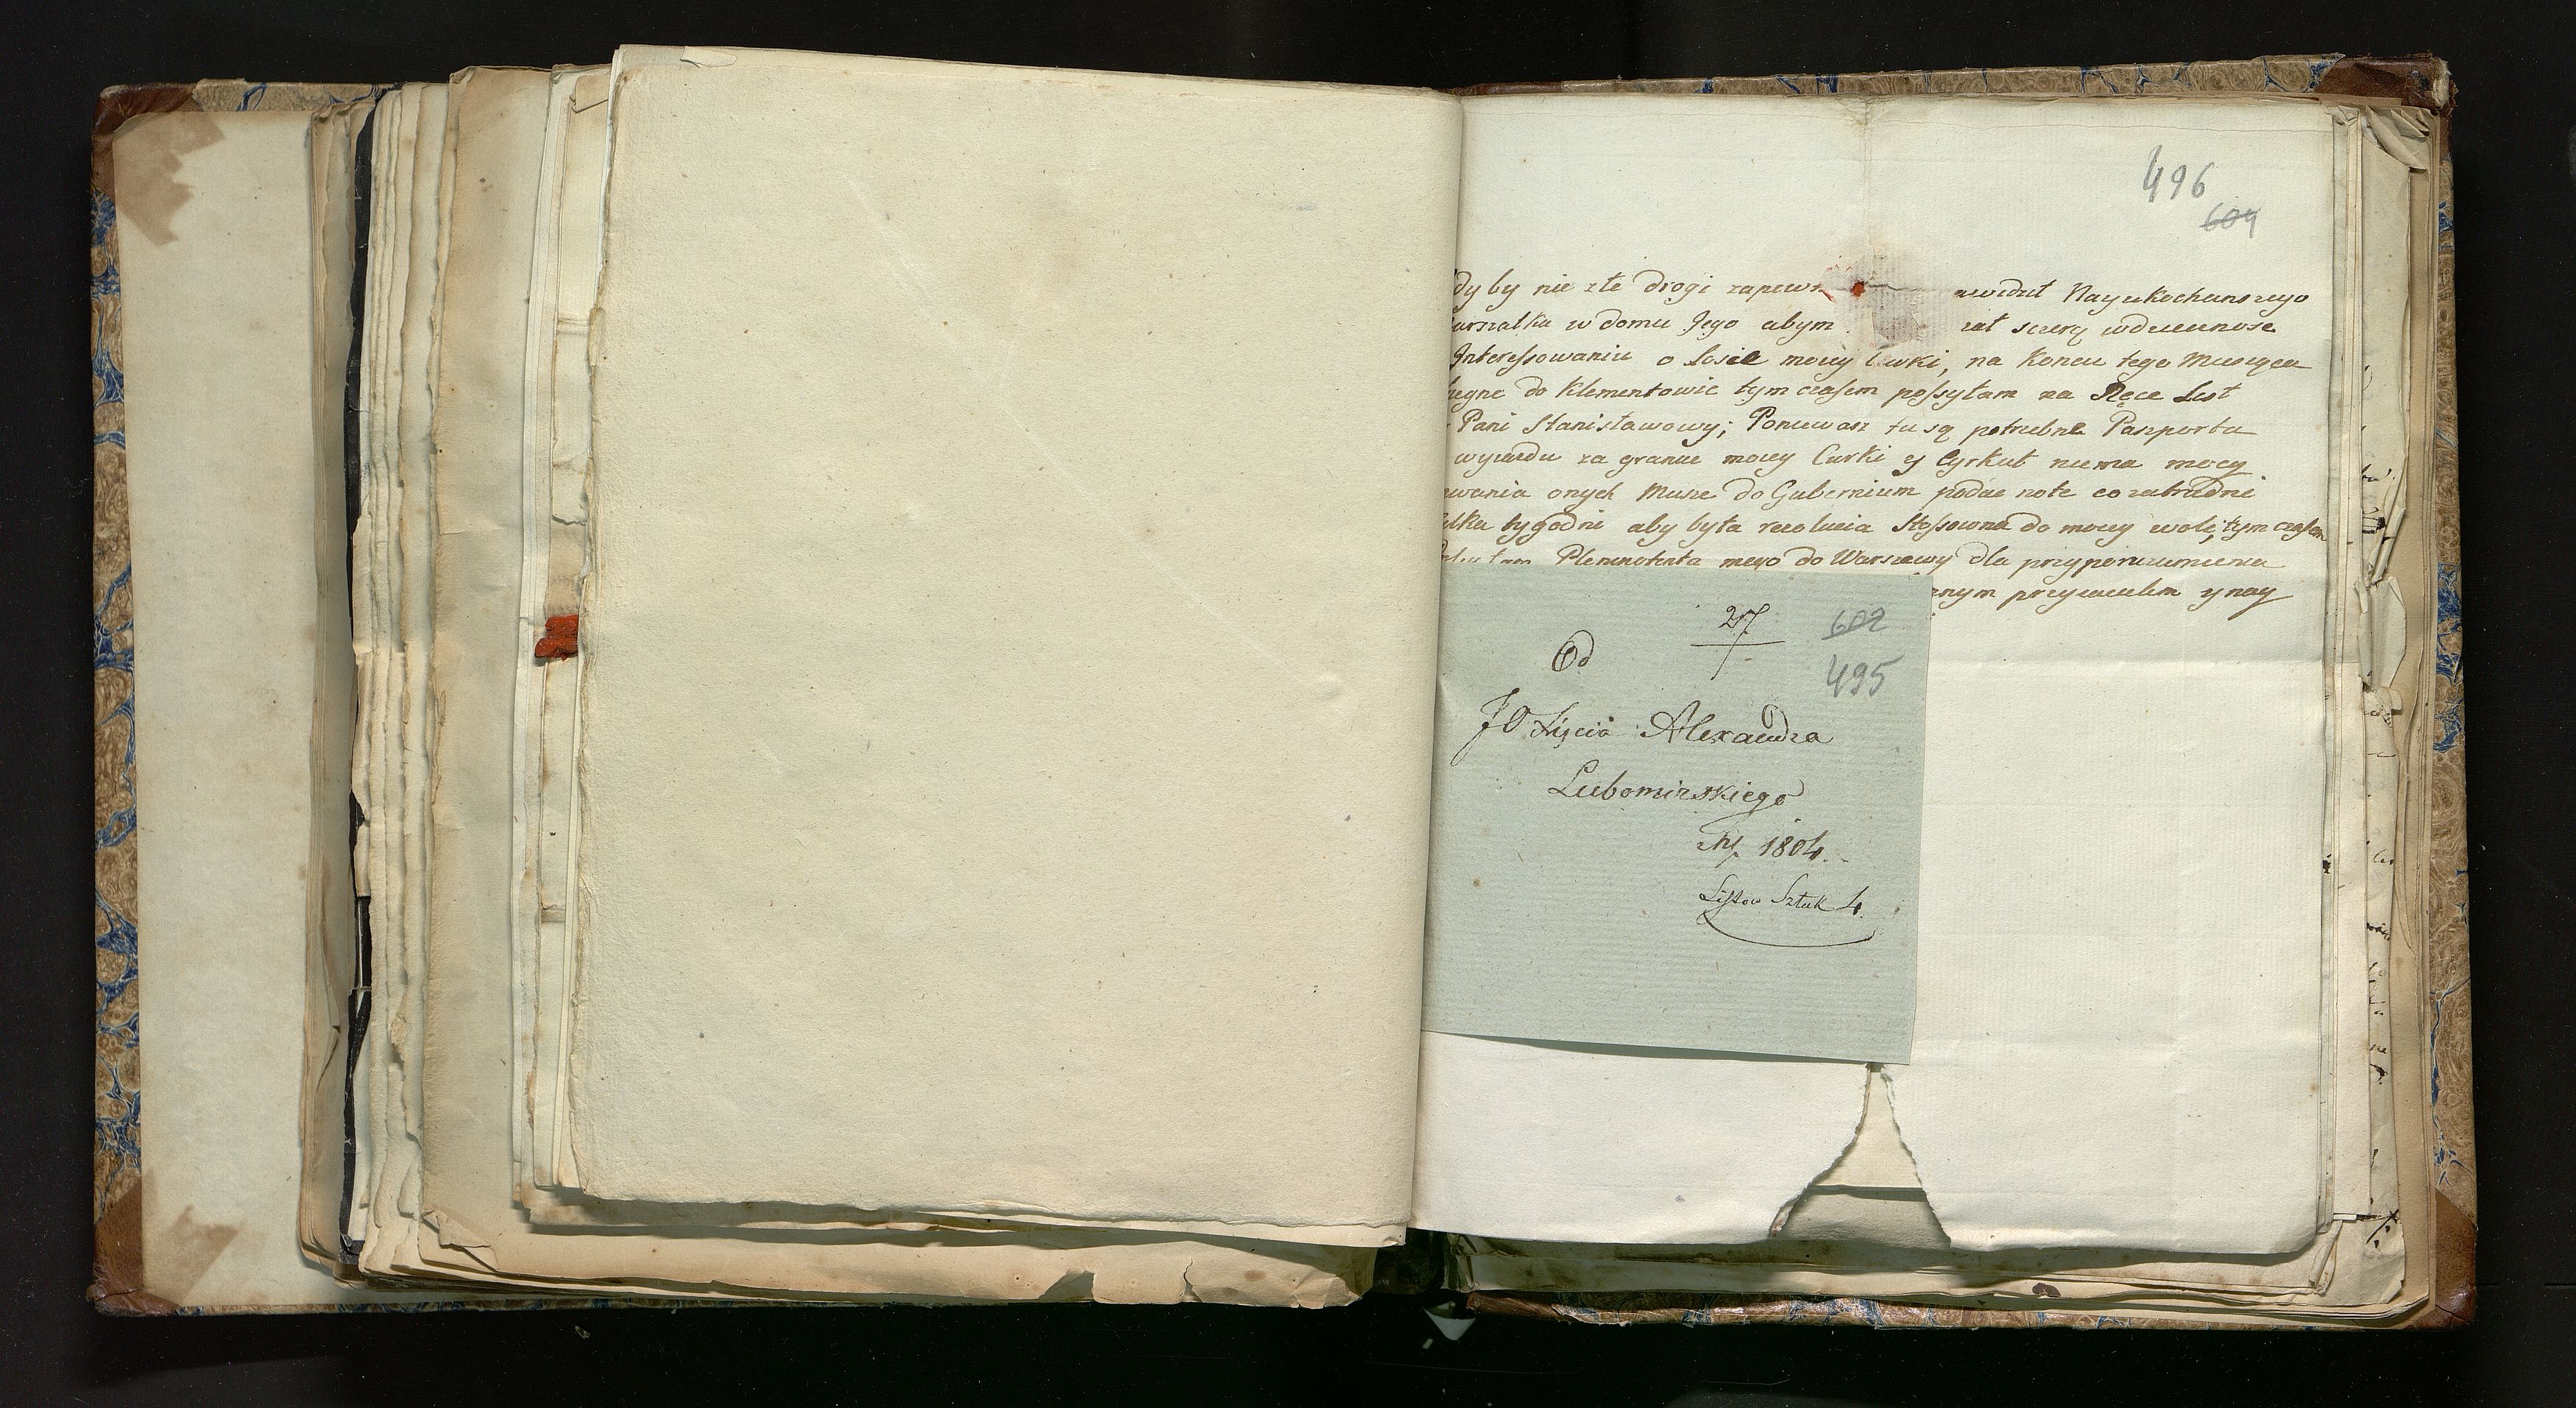 496
604
dyby nie złe drogi zapewn awidzł Nayukochanszego
arszałka w domu Jego abym zał szczerę wdzięcznosc
Interessowaniu o Losie moiey Curki, na Koncu tego Miesięca
do Klementowic tym czasem possyłam na Ręce List
Pani Stanisławowy; Poniewasz tu są potrzebne Paszporta
wyiazdu za granice moiey Curki y Cyrkuł niema mocy
wania onych Musze do Gubernium podac note co zatrudni
ilka tygodni aby była rezolucia stossowna do moiey woli, tym czasem
Plenipotenta mego do Warszawy dla przyporozumienia
przyiacielem y nay
27
602
Od
495
JO Xięcia Alexandra
Lubomirskiego
1804.
Listow Sztuk 4.